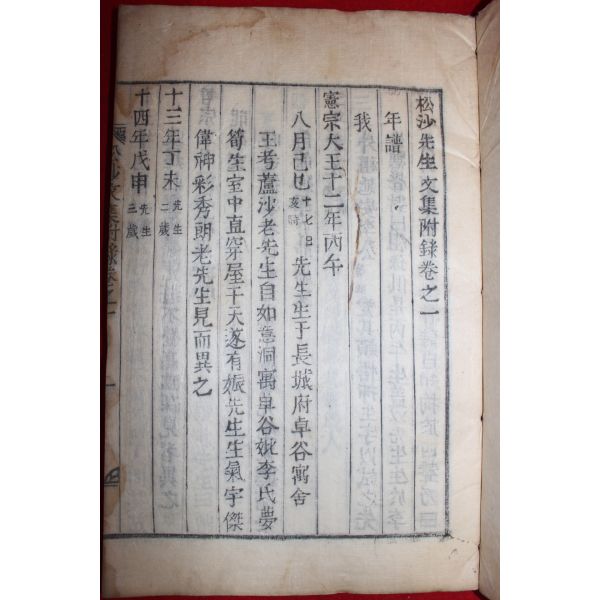 松沙先生文集附錄卷之一
年譜
我
憲宗大王十二年丙午
八月己巳十七日亥時先生生于長城府卓谷寓舍
王考蘆沙老先生自如意洞寓卓谷妣李氏夢
筍生室中直穿屋干天遂有娠先生生氣宇傑
偉神彩秀朗老先生見而異之
十三年丁未先生二歲
十四年戊申先生三歲
松沙文集附錄卷之一 一